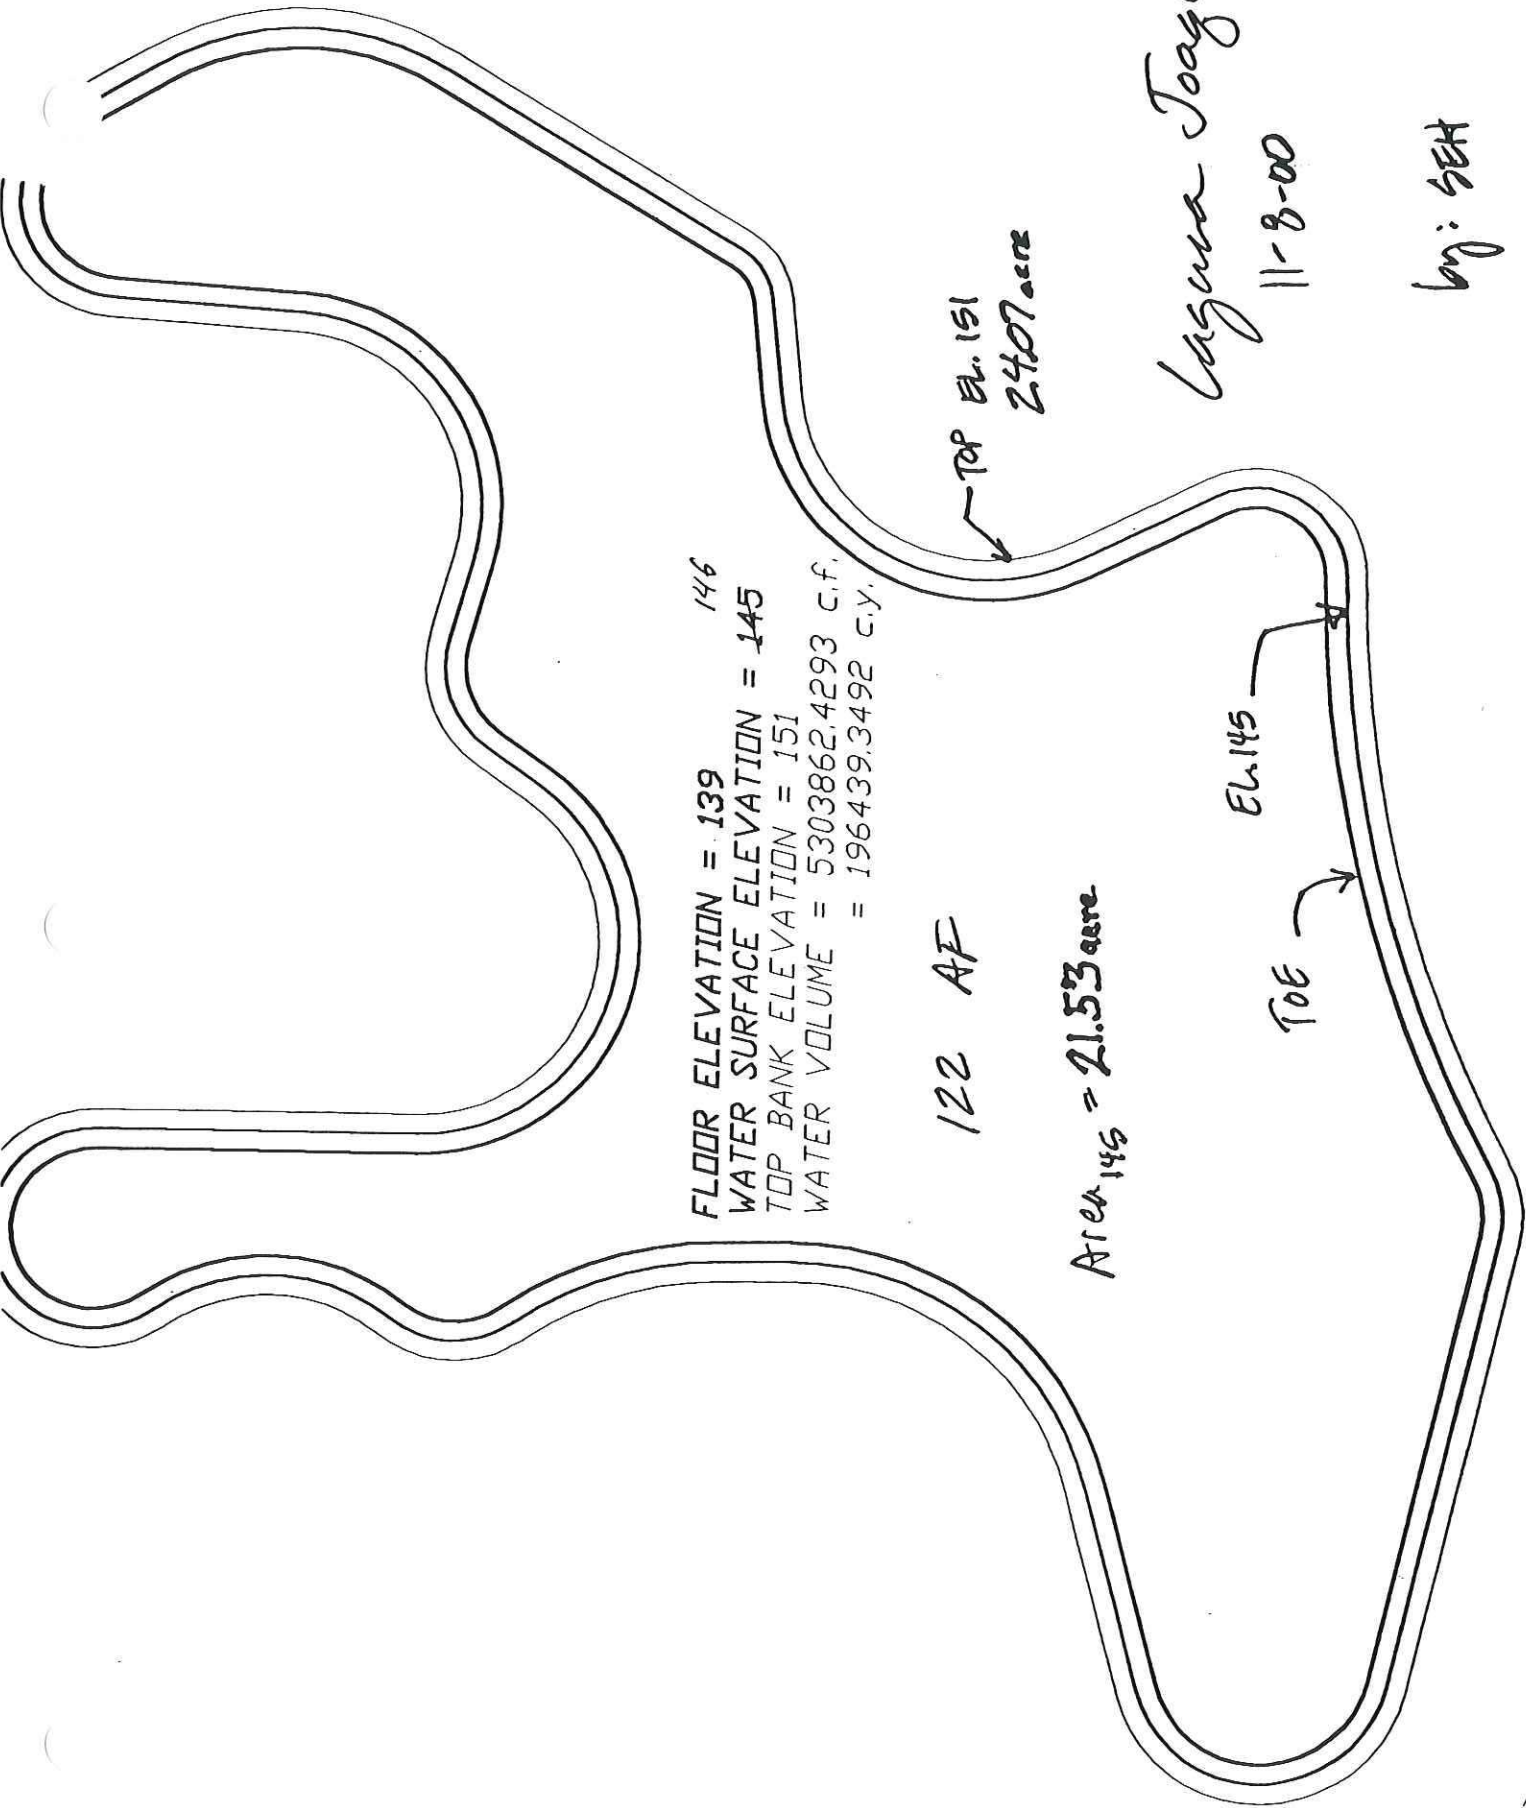 FLOOR ELEVATION = 139
146
WATER SURFACE ELEVATION = 145
TOP BANK ELEVATION = 151
WATER VOLUME = 5303862.4293 c.f.
= 196439.3492 c.y.
122 AF
Area 145 = 21.53 acre
TOP EL. 151
24.07 acre
EL. 145
TOE
Laguna Joaq
11-8-00
by: SEH